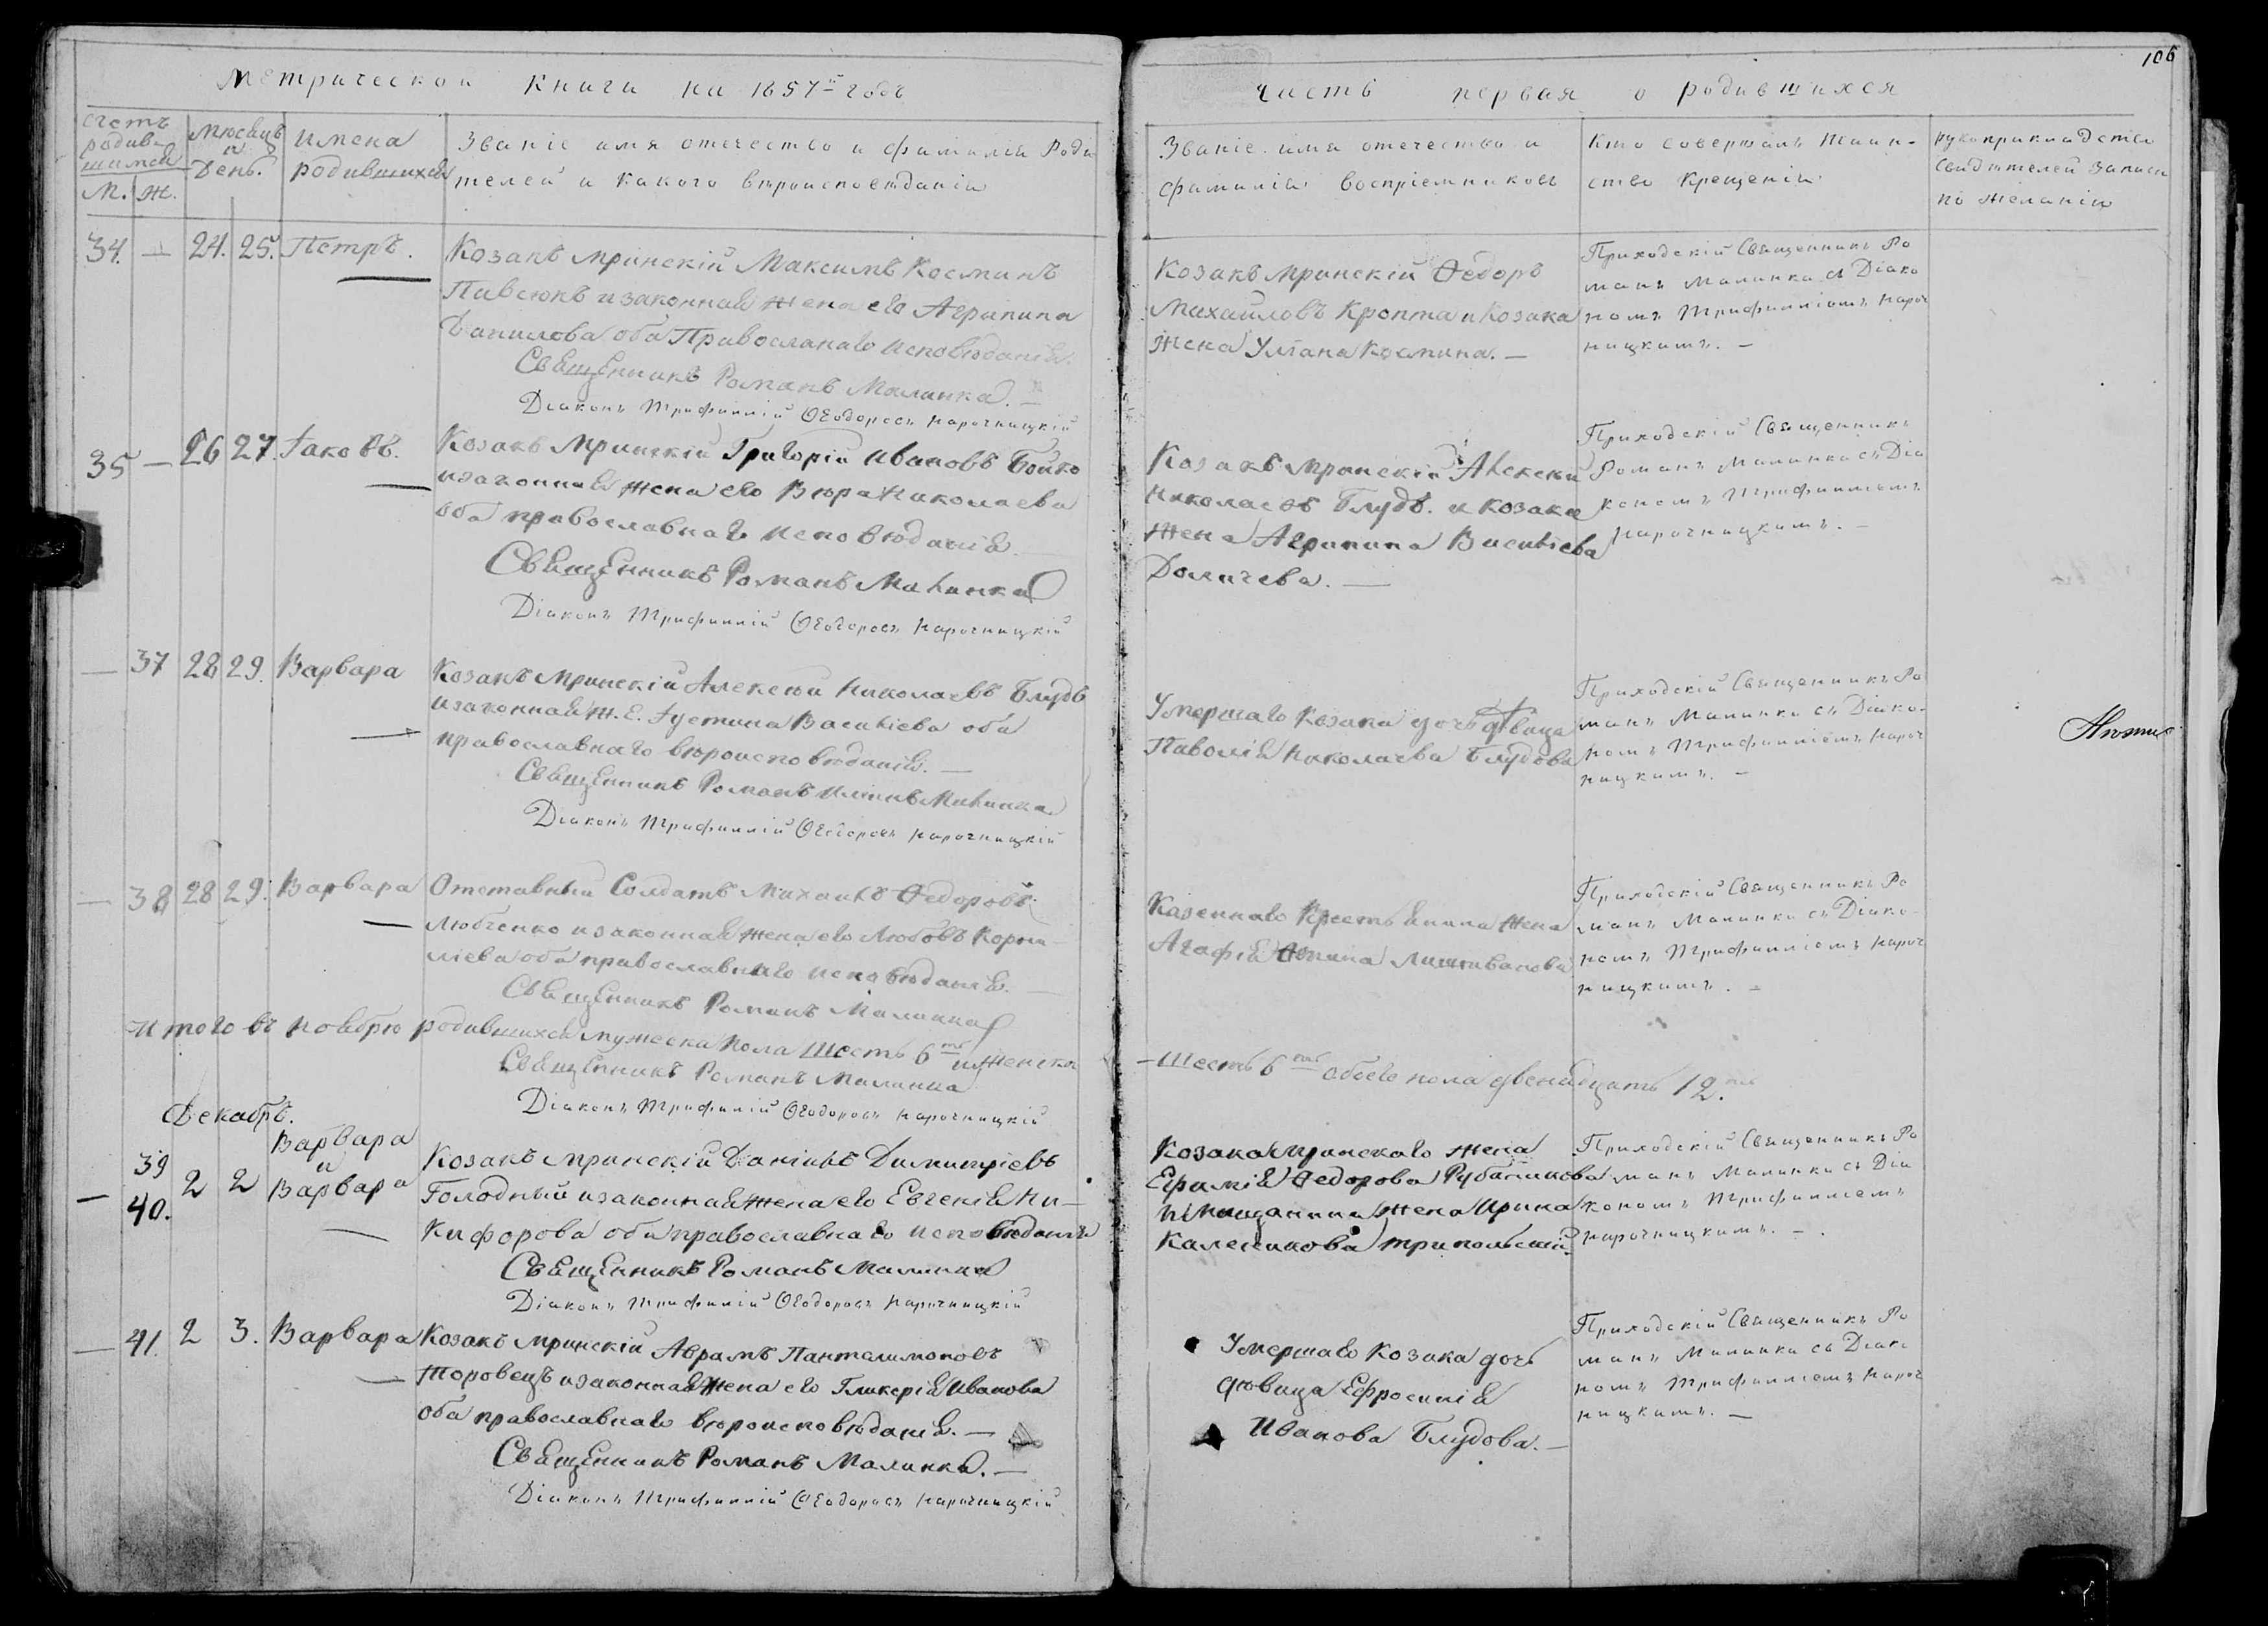 106
Метрической книги на 1857й годъ
часть первая о родившихся
счетъ родив-
шихся
М. Ж.
Мѣсяцъ
и
День.
имена
родившихся
Званіе имя отечество и фамилія Роди
телей и какого вѣроисповѣданія
Званіе имя отечество и
фамилія воспріемниковъ
Кто совершалъ таин-
ство крещенія
рукоприкладство
свидѣтелей записи
по желанію
34. — 24. 25. Петръ.
Козакъ Мринскій Максимъ Косминъ
Пивсюкъ и законная жена его Агрипина
Данилова оба Православнаго исповѣданія
Священникъ Романъ Малинка.
Діаконъ Трифиллій Ѳеодоровъ Нарочницкій
Козакъ Мринскій Ѳедоръ
Михайловъ Кропта и Козака
жена Уліана Космина. —
Приходскій Священникъ Ро
манъ Малинка съ Діако
номъ Трифилліомъ Нароч
ницкимъ. —
35 — 26 27. Іаковъ.
Козакъ Мринскій Григорій Ивановъ Бойко
и законная жена его Вѣра Николаева
оба православнаго исповѣданія. —
Священникъ Романъ Малинка
Діаконъ Трифиллій Ѳеодоровъ Нарочницкій
Козакъ Мринскій Алексѣй
Николаевъ Блудъ. и козака
жена Агрипина Василіева
Доличева. —
Приходскій Священникъ
Романъ Малинка съ Діа
кономъ Трифилліомъ
Нарочницкимъ. —
— 37 28 29. Варвара
Козакъ Мринскій Алексѣй Николаевъ Блудъ
и законная ж. е. Іустина Василіева оба
православнаго вѣроисповѣданія. —
Священникъ Романъ Малинка
Діаконъ Трифиллій Ѳеодоровъ Нарочницкій
Умершаго Козака дочь дѣвица
Николаева Блудова
Приходскій Священникъ Ро
манъ Малинка съ Діако-
номъ Трифилліомъ Нароч
ницкимъ. —
— 38 28 29. Варвара
Отставный Солдатъ Михаилъ Ѳедоровъ
Любченко и законная жена его Любовъ Корни-
ліева оба православнаго исповѣданія. —
Священникъ Романъ Малинка
Казеннаго Крестьянина жена
Агафія
Приходскій Священникъ Ро
манъ Малинка съ Діако-
номъ Трифилліомъ Нароч
ницкимъ. —
Итого въ ноябрѣ родившихся мужеска пола шесть 6ть и женска
— шесть 6ть обоего пола двенадцать 12.ть
Священникъ Романъ Малинка
Діаконъ Трифиллій Ѳеодоровъ Нарочницкій
Декабрь.
— 39 40. 2 2 Варвара
и
Варвара
Козакъ Мринскій Даніилъ Димитріевъ
Голодный и законная жена его Евгенія Ни-
кифорова оба православнаго исповѣданія
Священникъ Романъ Малинка
Діаконъ Трифиллій Ѳеодоровъ Нарочницкій
Козака Мринскаго жена
Ефимія Ѳедорова
и Мещанина жена Ирина
Приходскій Священникъ Ро
манъ Малинка съ Діа
кономъ Трифилліомъ
Нарочницкимъ. —
— 41. 2 3. Варвара
Козакъ Мринскій Аврамъ Пантелимоновъ
Торовецъ и законная жена его Гликерія Иванова
оба православнаго вѣроисповѣданія. —
Священникъ Романъ Малинка. —
Діаконъ Трифиллій Ѳеодоровъ Нарочницкій
Умершаго Козака дочь
дѣвица Ефросинія
Иванова Блудова. —
Приходскій Священникъ Ро
манъ Малинка съ Діако
номъ Трифилліомъ Нароч
ницкимъ. —